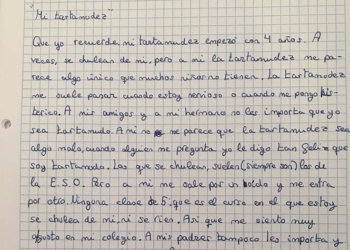 "Mi tartamudez"
Que yo recuerde, mi tartamudez empezó con 4 años. A
veces, se chulean de mi, pero a mi la tartamudez me pa-
rece algo único que muchos niños no tienen. La tartamudez
me suele pasar cuando estoy nervioso o cuando me pongo his-
terico. A mis amigos y a mi hermano no les importa que yo
sea tartamudo. A mi no me parece que la tartamudez sea
algo malo, cuando alguien me pregunta yo le digo tan feliz que
soy tartamudo. Los que se chulean, suelen (siempre son) los de
la E.S.O. Pero a mi me sale por un oido y me entra
por otro. Ninguna clase de 5º, que es el curso en el que estoy
se chulea de mi, ni se rien. Asi que me siento muy
agusto en mi colegio. A mis padres tampoco les importa y